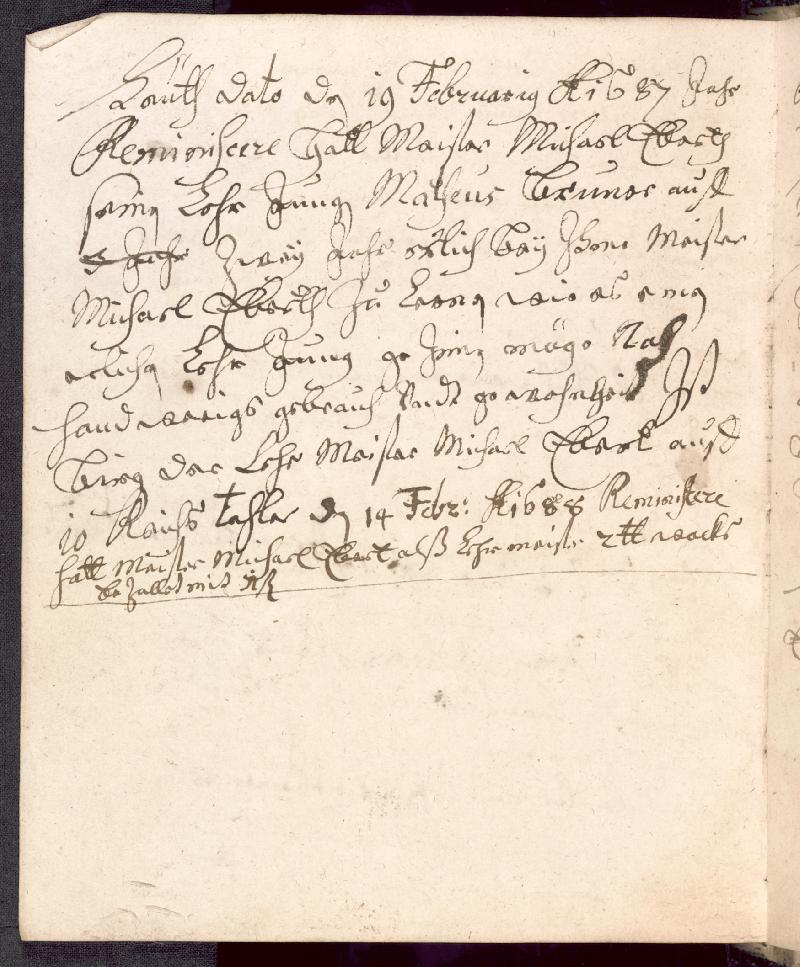 Heuth dato den 19 Februarig A 1687 Jahr
Reminiscere hatt Meister Michael Eberth
seinen Lehr Jungen Matheus Bruner auff
3 Jahr Zwey Jahr ehrlich bey Ihme Meister
Michael Eberth zu Lernen wie es einen
erlichen Lehr Jungen geziemen möge Nach
handwerigs gebrauch Undt gewohnheit Ist
Bürg der Lehr Meister Michael Ebert auff
10 Reichs taller den 14 Febr: A 1688 Reminiscere
hatt Meister Michael Ebert alß Lehr meister 2 tt wachs
bezallet mit